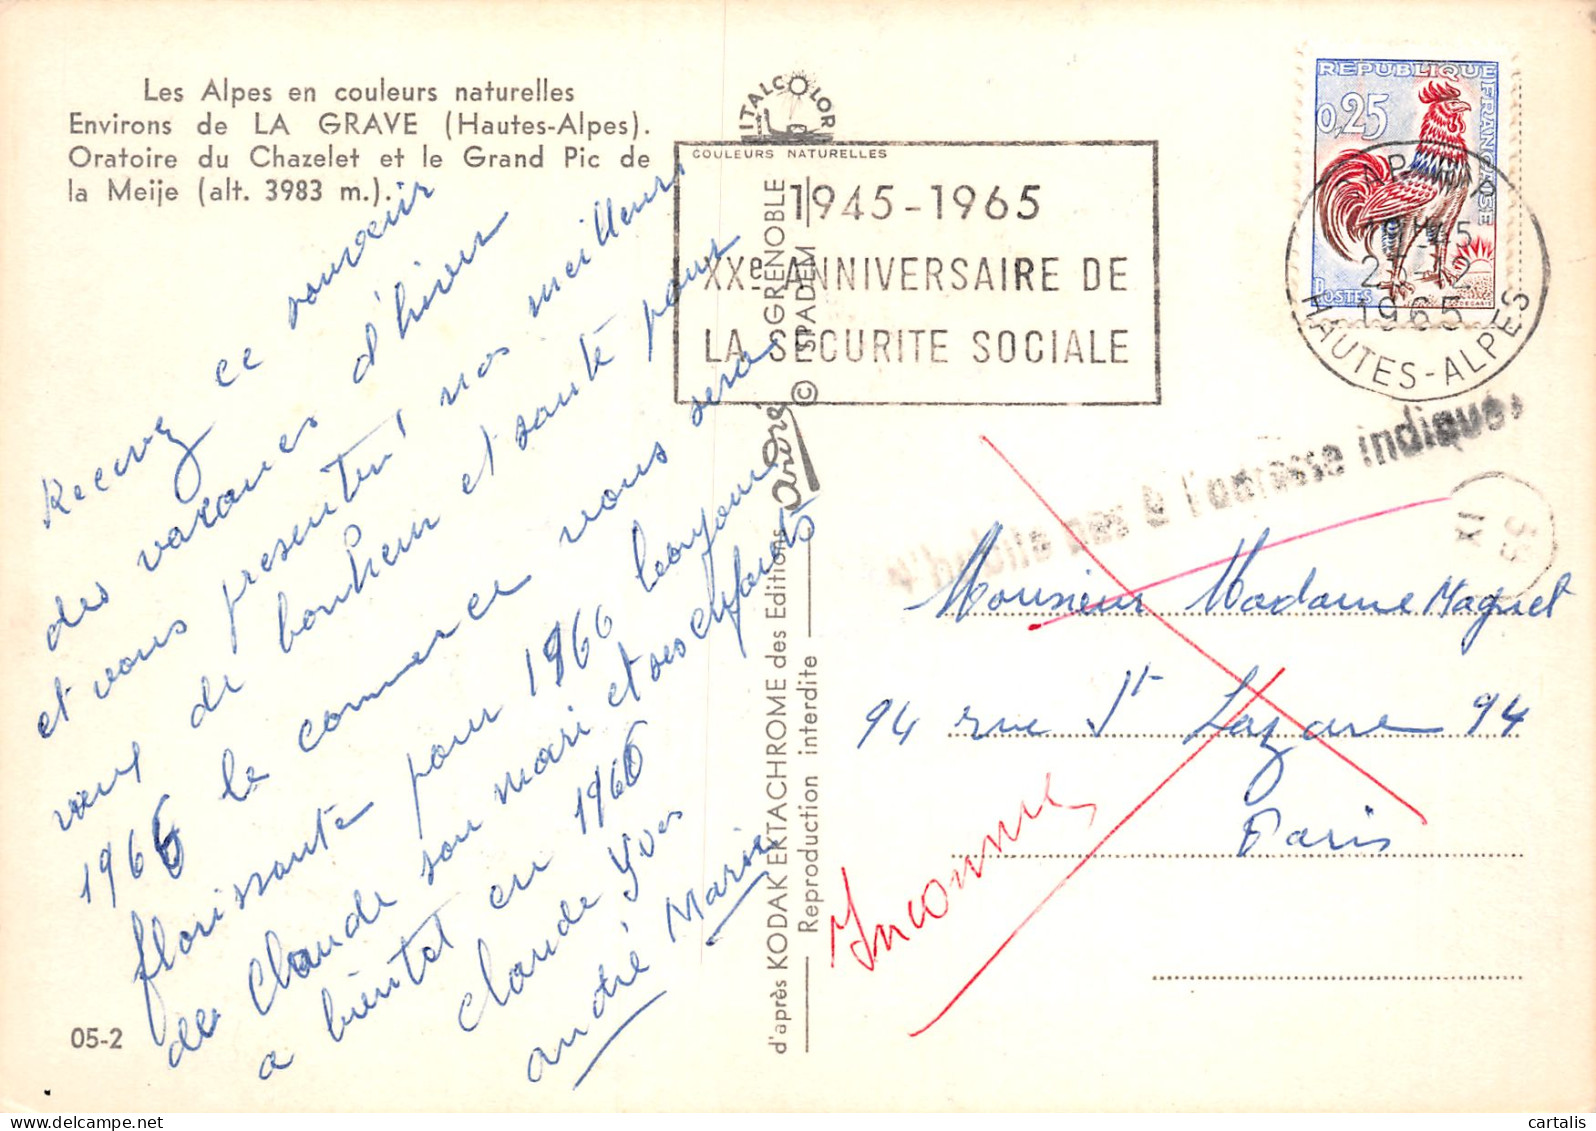 Les Alpes en couleurs naturelles
Environs de LA GRAVE (Hautes-Alpes).
Oratoire du Chazelet et le Grand Pic de
la Meije (alt. 3983 m.).
Recevez ce souvenir
des vacances d'hiver
et vous présenter nos meilleurs
vœux de bonheur et santé pour
1966 le commerce vous sera
florissante pour 1966 bonjour
de Claude son mari et ses enfants
a bientot en 1966
Claude Yves
andré Marie
05-2
ITALCOLOR
COULEURS NATURELLES
1945-1965
XXe ANNIVERSAIRE DE
LA SECURITE SOCIALE
GRENOBLE
© SPADEM
d'après KODAK EKTACHROME des Editions André
Reproduction interdite
REPUBLIQUE FRANÇAISE
0,25
POSTES
DECARIS
19H45
1965
HAUTES-ALPES
N'habite pas à l'adresse indiquée
Monsieur Madame Maguet
94 rue St Lazare 94
Paris
Inconnu
cartalis